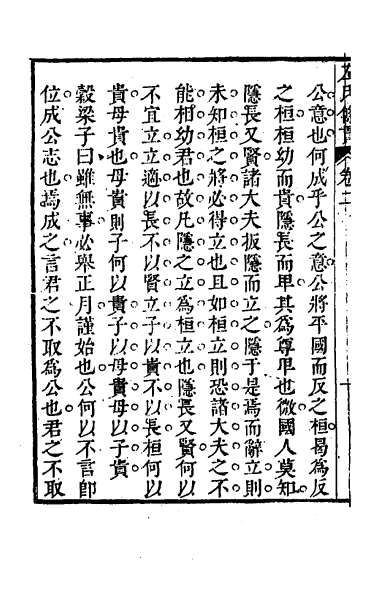 公意也何成乎公之意公將平國而反之桓曷爲反
之桓桓幼而貴隱長而卑其爲尊卑也微國人莫知
隱長又賢諸大夫扳隱而立之隱于是焉而辭立則
未知桓之將必得立也且如桓立則恐諸大夫之不
能相幼君也故凡隱之立爲桓立也隱長又賢何以
不宜立立適以長不以賢立子以貴不以長桓何以
貴母貴也母貴則子何以貴子以母貴母以子貴
穀梁子曰雖無事必舉正月謹始也公何以不言卽
位成公志也焉成之言君之不取爲公也君之不取
卷二